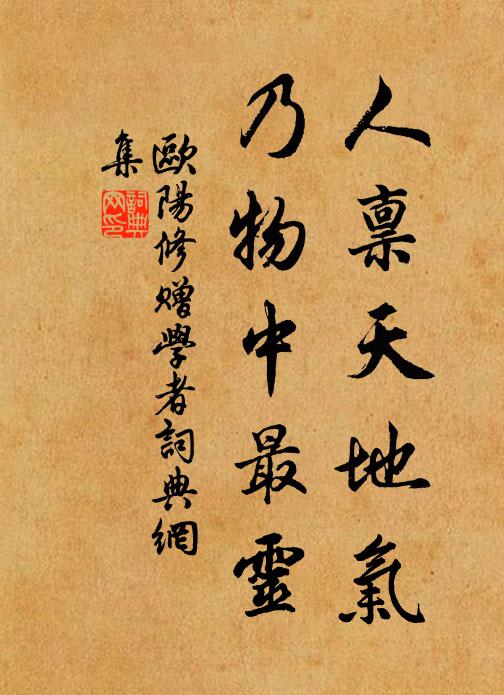 人稟天地氣
乃物中最靈
歐陽修贈學者詞典網
集
詞典
网印